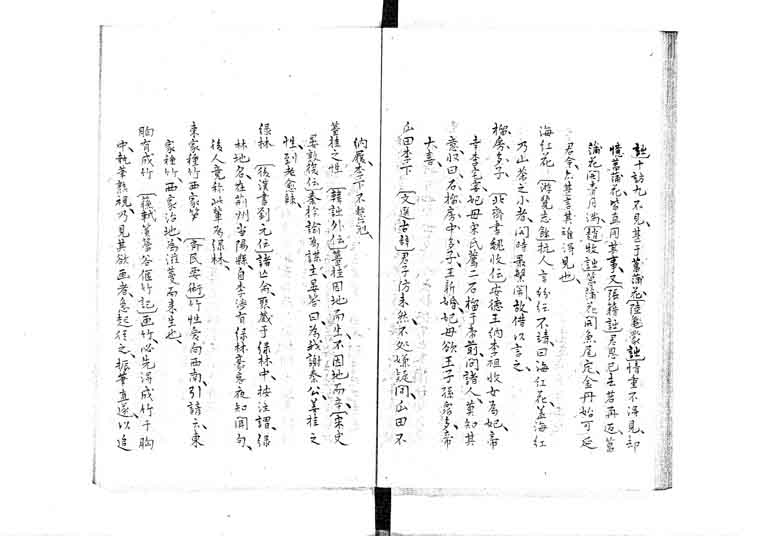 詩十訪九不見甚于菖蒲花〔陸龜蒙詩〕情重不得見却
憶菖蒲花皆直用其事又〔張籍詩〕君恩已去若再返菖
蒲花開青月滿〔施肩吾詩〕菖蒲花開魚尾定金丹始可延
君命亦甚言其難得見也
海紅花〔游覽志餘〕杭人言紛紜不靖曰海紅花蓋海紅
乃山茶之小者開時最繁鬧故借以言之
榴房多子〔北齊書魏收傳〕安德王納李祖收女為妃帝
幸李宅妃母宋氏薦二石榴于帝前問諸人莫知其
意收曰石榴房中多子王新婚妃母欲王子孫眾多帝
大喜
瓜田李下〔文選古辭〕君子防未然不處嫌疑間瓜田不
納履李下不整冠
薑桂之性〔韓詩外傳〕薑桂因地而生不因地而辛〔宋史
晏敦復傳〕秦檜諭為謀主晏答曰為我謝秦公薑桂之
性到老愈辣
綠林〔後漢書劉元傳〕諸亡命聚藏于綠林中按注謂綠
林地名在荊州當陽縣自李涉有綠林豪客夜知聞句
後人竟稱此輩為綠林
東家種竹西家笋〔齊民要術〕竹性愛向西南引諺云東
家種竹西家治地為滋蔓而來生也
胸有成竹〔蘇軾篔簹谷偃竹記〕画竹必先得成竹于胸
中執筆熟視乃見其欲画者急起從之振筆直遂以追